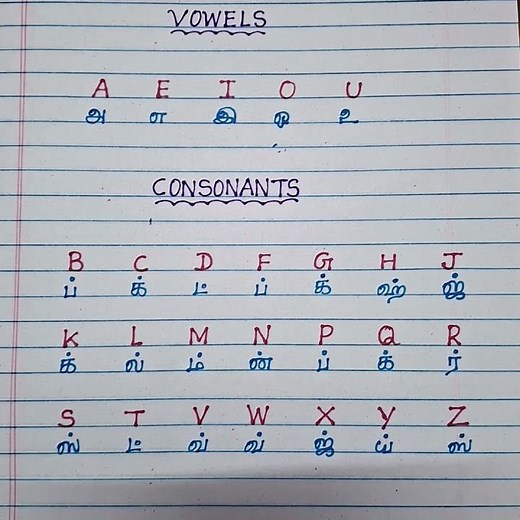 VOWELS
A E I O U
அ எ இ ஒ உ
CONSONANTS
B C D F G H J
ப் க் ட் ப் க் ஹ் ஜ்
K L M N P Q R
க் ல் ம் ண் ப் க் ர்
S T V W X Y Z
ஸ் ட் வ் வ் ஜ் ய் ஸ்